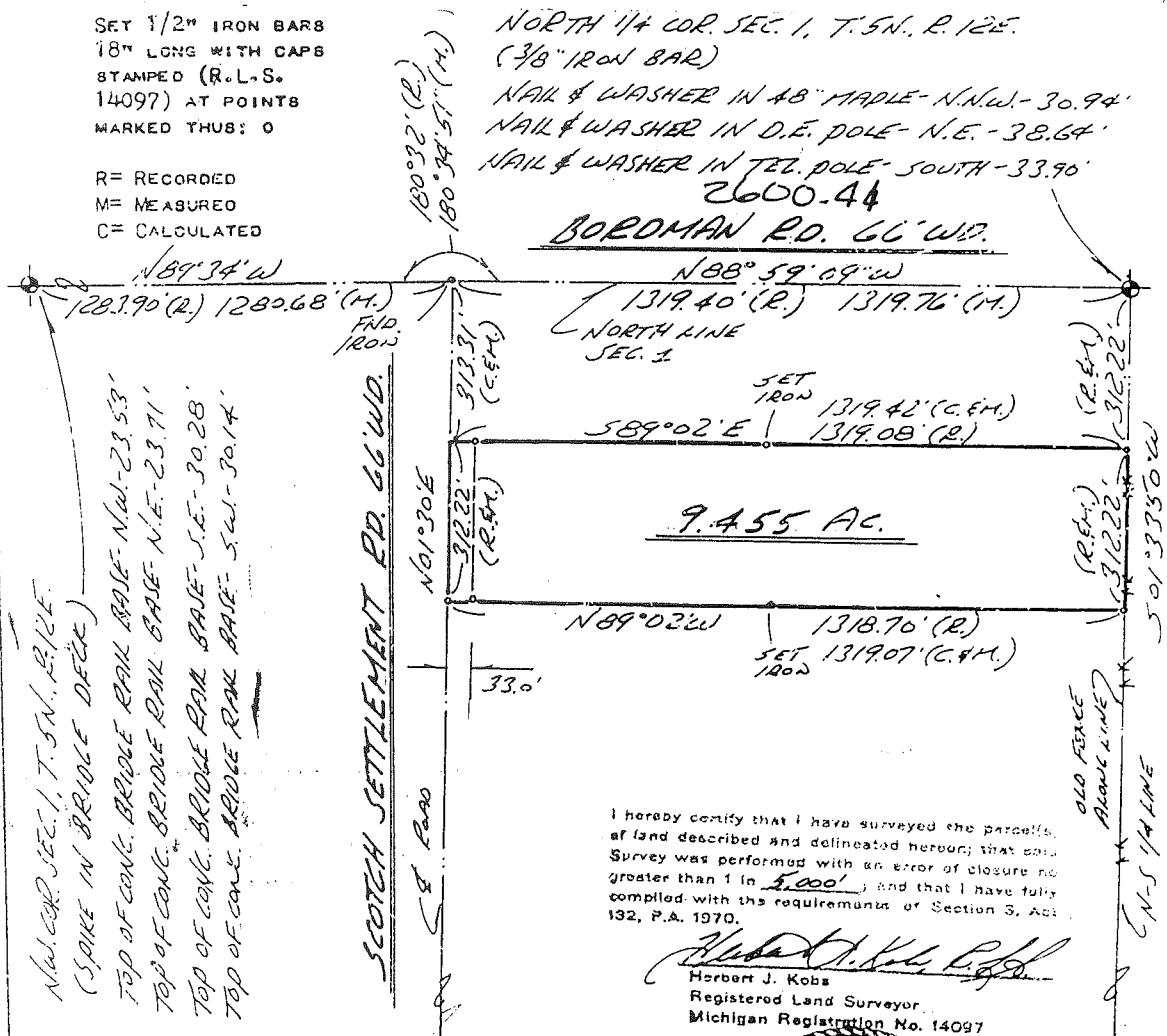 SET 1/2" IRON BARS
18" LONG WITH CAPS
STAMPED (R.L.S.
14097) AT POINTS
MARKED THUS: O
R= RECORDED
M= MEASURED
C= CALCULATED
NORTH 1/4 COR. SEC. 1, T.5N., R.12E.
(3/8" IRON BAR)
NAIL & WASHER IN 48" MAPLE - N.N.W. - 30.94'
NAIL & WASHER IN D.E. POLE - N.E. - 38.64'
NAIL & WASHER IN TEL. POLE - SOUTH - 33.90'
2600.44
BORDMAN RD. 66' WD.
180°32' (R.)
180°34'51" (M.)
N89°34'W
1283.90'(R.) 1280.68'(M.)
FND.
IRON
N88°59'09"W
1319.40'(R.) 1319.76'(M.)
NORTH LINE
SEC. 1
313.31'
(C.&M.)
(R.&M.)
312.22'
SET
IRON
1319.42'(C.&M.)
S89°02'E 1319.08'(R.)
N01°30'E
312.22'
(R.&M.)
9.455 AC.
(R.&M.)
312.22'
S01°33'50"W
N89°02'W 1318.70'(R.)
SET
IRON
1319.07'(C.&M.)
33.0'
SCOTCH SETTLEMENT RD. 66' WD.
℄ ROAD
OLD FENCE
ALONG LINE
N-S 1/4 LINE
N.W. COR. SEC. 1, T.5N., R.12E.
(SPIKE IN BRIDGE DECK)
TOP OF CONC. BRIDGE RAIL BASE - N.W. - 23.53'
TOP OF CONC. BRIDGE RAIL BASE - N.E. - 23.71'
TOP OF CONC. BRIDGE RAIL BASE - S.E. - 30.28'
TOP OF CONC. BRIDGE RAIL BASE - S.W. - 30.14'
I hereby certify that I have surveyed the parcel(s)
of land described and delineated hereon; that said
Survey was performed with an error of closure no
greater than 1 in 5,000'; and that I have fully
complied with the requirements of Section 3, Act
132, P.A. 1970.
Herbert J. Kobs, R.L.S.
Herbert J. Kobs
Registered Land Surveyor
Michigan Registration No. 14097